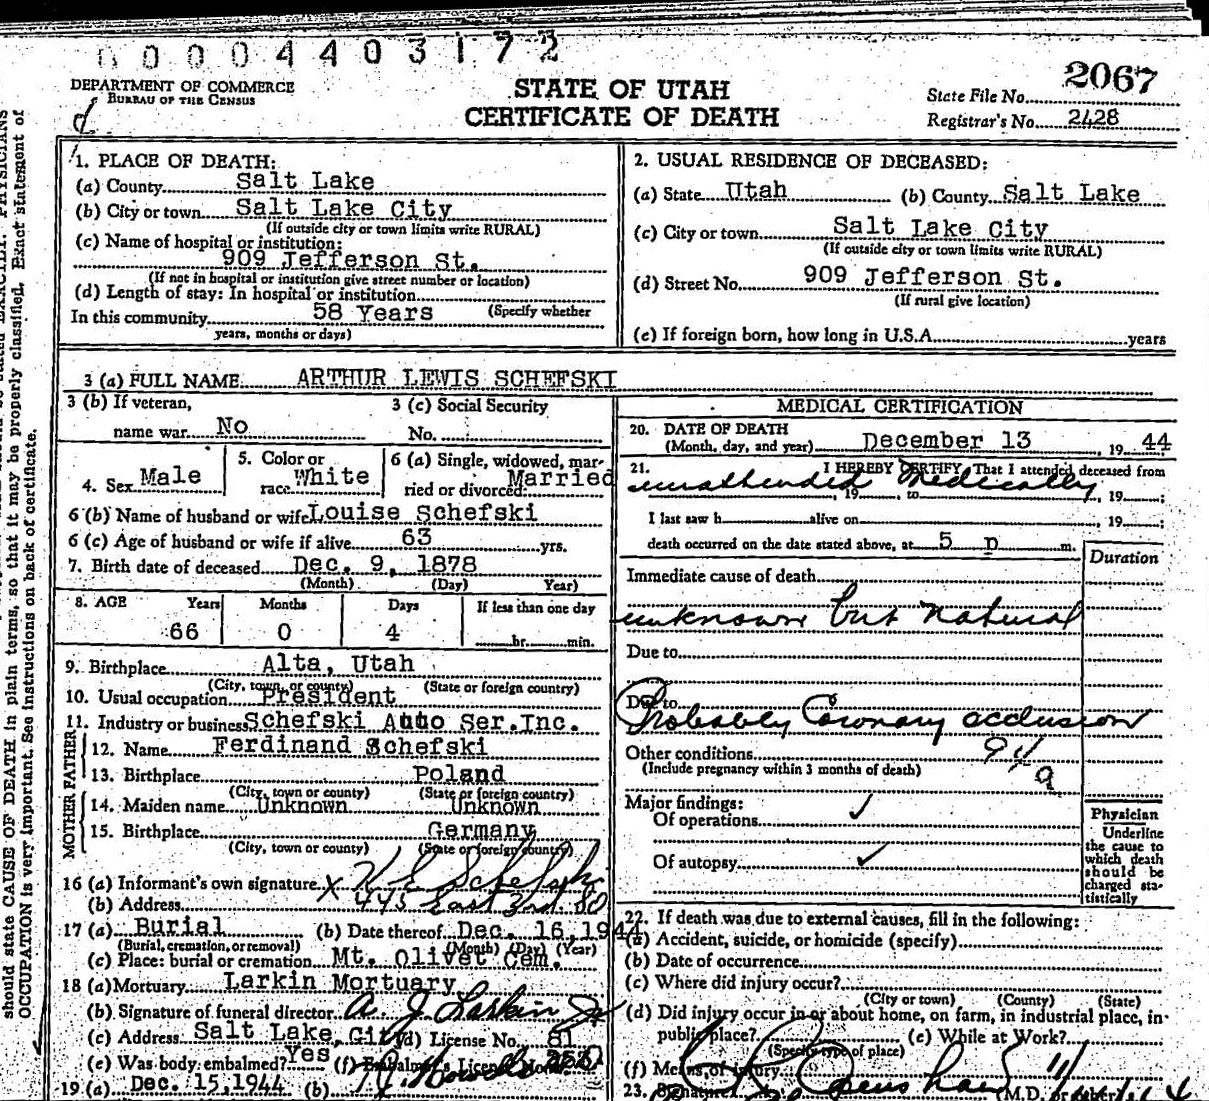 00004403172
DEPARTMENT OF COMMERCE
BUREAU OF THE CENSUS
STATE OF UTAH
CERTIFICATE OF DEATH
2067
State File No.
Registrar's No. 2428
1. PLACE OF DEATH:
(a) County Salt Lake
(b) City or town Salt Lake City
(If outside city or town limits write RURAL)
(c) Name of hospital or institution:
909 Jefferson St.
(If not in hospital or institution give street number or location)
(d) Length of stay: In hospital or institution
In this community 58 Years (Specify whether
years, months or days)
2. USUAL RESIDENCE OF DECEASED:
(a) State Utah (b) County Salt Lake
(c) City or town Salt Lake City
(If outside city or town limits write RURAL)
(d) Street No. 909 Jefferson St.
(If rural give location)
(e) If foreign born, how long in U.S.A. years
3 (a) FULL NAME ARTHUR LEWIS SCHEFSKI
3 (b) If veteran,
name war No
3 (c) Social Security
No.
4. Sex Male
5. Color or
race White
6 (a) Single, widowed, mar-
ried or divorced: Married
6 (b) Name of husband or wife Louise Schefski
6 (c) Age of husband or wife if alive 63 yrs.
7. Birth date of deceased Dec. 9, 1878
(Month) (Day) Year)
8. AGE Years Months Days If less than one day
66 0 4 hr. min.
9. Birthplace Alta, Utah
(City, town, or county) (State or foreign country)
10. Usual occupation President
11. Industry or business Schefski Auto Ser.Inc.
FATHER
12. Name Ferdinand Schefski
13. Birthplace Poland
(City, town or county) (State or foreign country)
MOTHER
14. Maiden name Unknown Unknown
15. Birthplace Germany
(City, town or county) (State or foreign country)
16 (a) Informant's own signature X H E Schefski
(b) Address 445 East 3rd. So
17 (a) Burial (b) Date thereof Dec. 16, 1944
(Burial, cremation, or removal) (Month) (Day) (Year)
(c) Place: burial or cremation Mt. Olivet Cem.
18 (a) Mortuary Larkin Mortuary
(b) Signature of funeral director A. J. Larkin Jr
(c) Address Salt Lake City (d) License No. 81
(e) Was body embalmed? Yes (f) Embalmer's License No.
19 (a) Dec. 15, 1944 (b)
MEDICAL CERTIFICATION
20. DATE OF DEATH
(Month, day, and year) December 13 19 44
21. I HEREBY CERTIFY, That I attended deceased from
unattended Medically, 19 to , 19 ;
I last saw h alive on , 19 ;
death occurred on the date stated above, at 5 p m.
Duration
Immediate cause of death
unknown but natural
Due to
Due to
Probably Coronary occlusion
Other conditions 94
(Include pregnancy within 3 months of death) a
Major findings:
Of operations ✓
Of autopsy ✓
Physician
Underline
the cause to
which death
should be
charged sta-
tistically
22. If death was due to external causes, fill in the following:
(a) Accident, suicide, or homicide (specify)
(b) Date of occurrence
(c) Where did injury occur?
(City or town) (County) (State)
(d) Did injury occur in or about home, on farm, in industrial place, in
public place? (e) While at Work?
(Specify type of place)
(f) Means of injury
23. Signature (M.D. or other)
should state CAUSE OF DEATH in plain terms, so that it may be properly classified. Exact statement of
OCCUPATION is very important. See instructions on back of certificate.